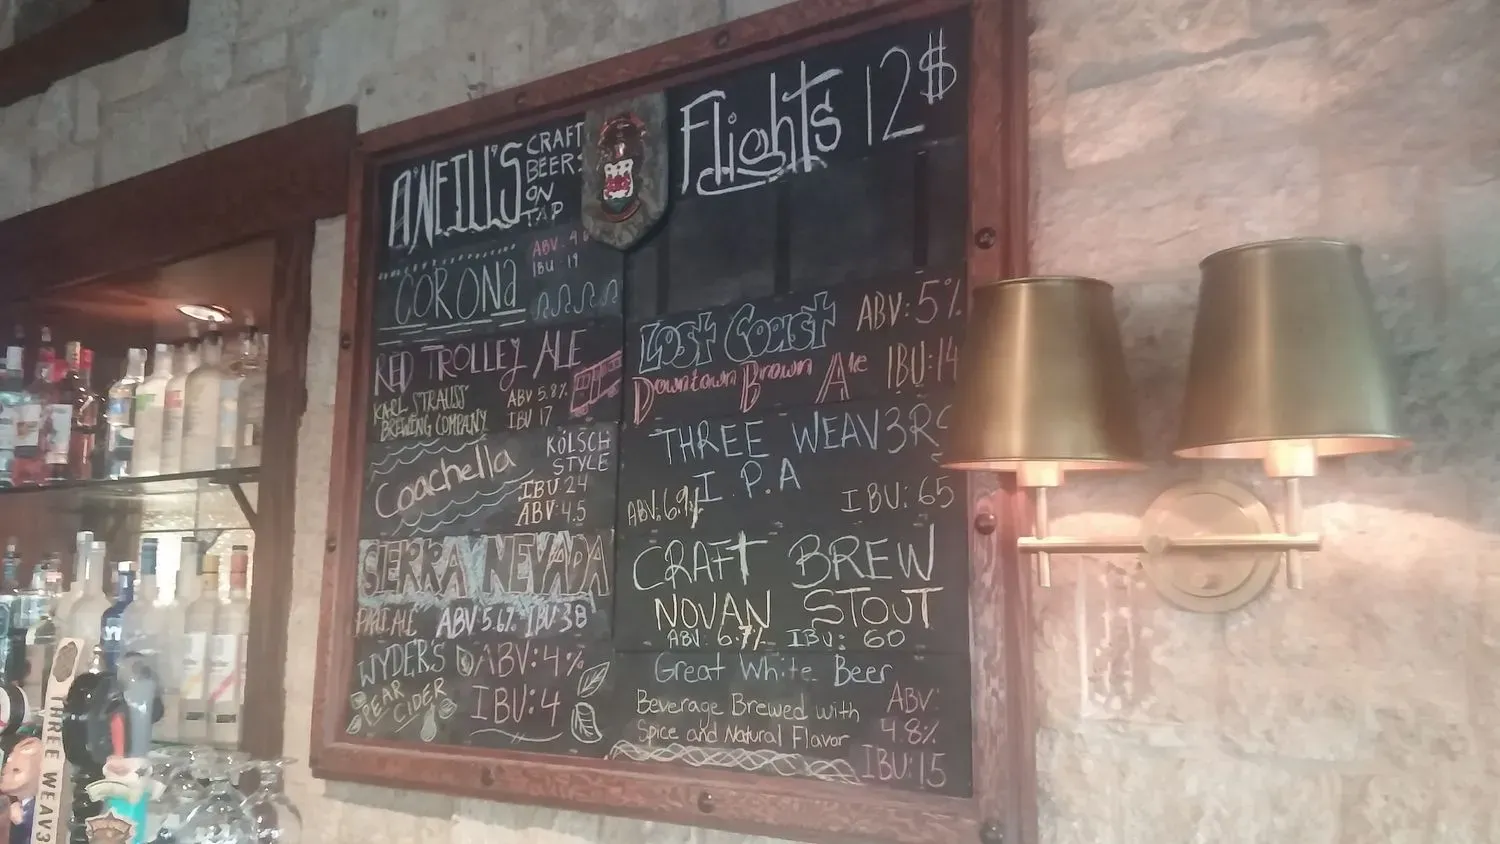 A'NEILL'S
CRAFT
BEERS
ON
TAP
CORONA
ABV. 4.6
IBU. 19
RED TROLLEY ALE
KARL STRAUSS
BREWING COMPANY
ABV 5.8%
IBU 17
Coachella
KÖLSCH
STYLE
IBU 24
ABV 4.5
SIERRA NEVADA
PALE ALE ABV 5.6% IBU 38
WYDER'S ABV: 4%
PEAR
CIDER
IBU: 4
Flights 12$
Lost Coast
ABV: 5%
Downtown Brown Ale
IBU: 14
THREE WEAV3RS
I.P.A
ABV: 6.9%
IBU: 65
CRAFT BREW
NOVAN STOUT
ABV: 6.7% IBU: 60
Great White Beer
Beverage Brewed with
Spice and Natural Flavor
ABV:
4.8%
IBU: 15
THREE WEAV3